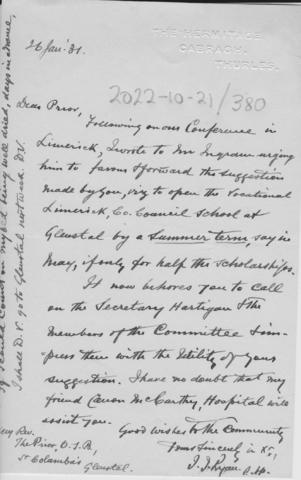 THE HERMITAGE
CABRAGH,
THURLES.
26 Jan' 31.
2022-10-21/380
Dear Prior,
Following on our Conference in
Limerick, I wrote to Mr Ingram urging
him to favour & forward the suggestion
made by you, viz to open the Vocational
Limerick, Co. Council School at
Glenstal by a Summer term, say in
May, if only for half the scholarships.
It now behoves you to call
on the Secretary Hartigan & the
members of the Committee & im-
press them with the utility of your
suggestion. I have no doubt that my
friend Canon McCarthy, Hospital will
assist you.
Good wishes to the Community
Yours Sincerely in Xt,
J. J. Ryan
Very Rev.
The Prior, O.S.B,
St Columba's
Glenstal.
If I could count on my bed being well dried, days in advance,
I shall D.V. go to Glenstal next week. D.V.